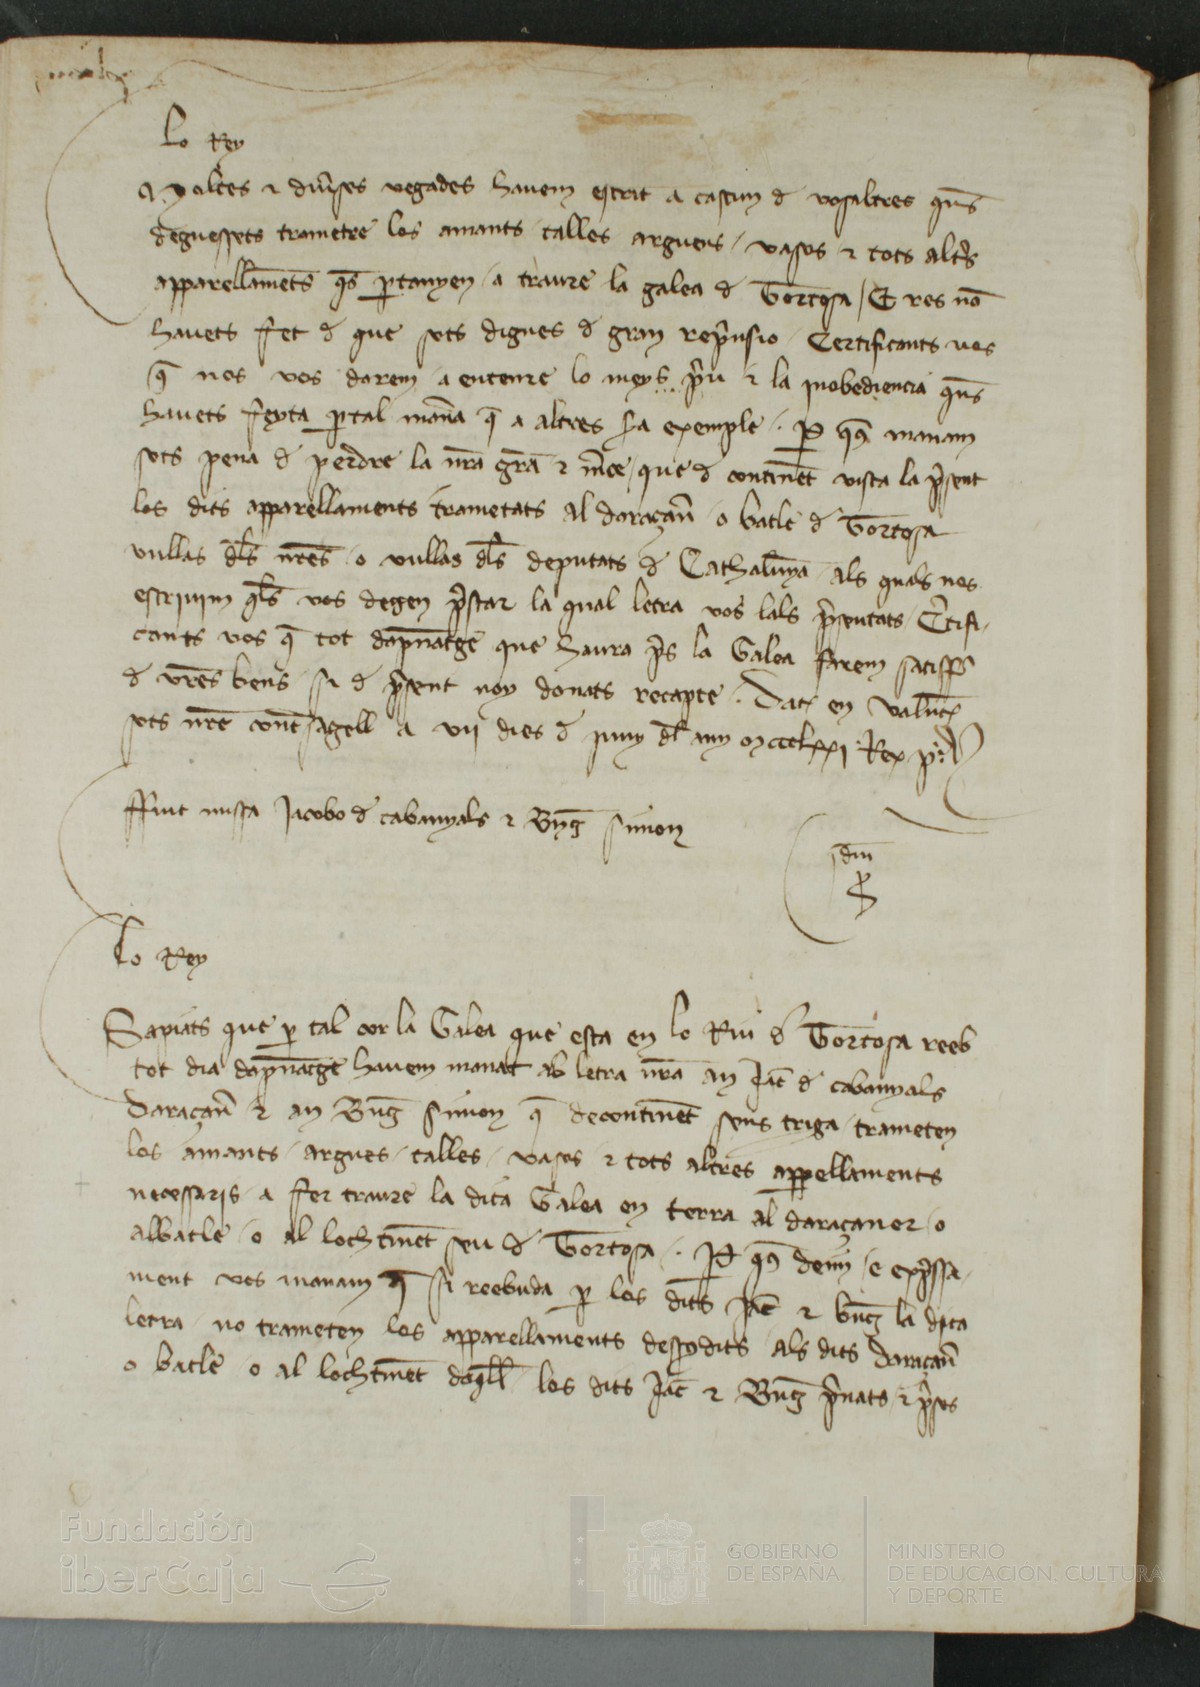 Lo Rey
Moltes ⁊ diu̅ses vegades hauem escrit a cascun đ vosaltres qu̅s
deguessets trametre los amants talles arguens / vasos ⁊ tots alt̅s
apparellame̅ts q̅s p̱tanyen / a traure la galea đ Tortosa / E res no̅
hauets fet đ que sots dignes đ gran rep̅nsio Certificants vos
q̅ nos vos darem / a entenre lo meys p̅u ⁊ la inobediencia qu̅s
hauets feyta p̱tal man̅a q̅ a altres sia exemple . P̱ q̅ manam
sots pena đ perdre la nr̅a gr̅a ⁊ m̅ce / que đ contine̅t vista la p̅sent
los dits apparellaments trametats al daraçan̅ o batle đ Tortosa
vullas dl̅s nr̅es o vullas dl̅s deputats đ Cathalu̅ya als quals nos
escriuim ql̅s vos degen p̅star la qual letra vos lals p̅sentats / C̅tifi
cants vos q̅ tot dap̅natge que haura p̅s la Galea farem satisff̅
đ vr̅es bens si đ p̅sent noy donats recapte . Dat̅ en Vale̅t̅
sots nr̅e segell a vii dies đ juny dl̅ any mccclxxi Rex p̱
ffuit missa Jacobo đ cabanyals ⁊ Bn̅g simon
Lo Rey
Sapiats que p̱ tal cor la Galea que esta en lo Riu đ Tortosa reeb
tot dia dap̅natge hauem manat ab letra nr̅a an Jac̅ đ cabanyals
Daraçan̅ ⁊ an Bn̅g simon q̅ decontine̅t sens triga / trameten
los amants / argues / talles / vasos ⁊ tots altres app̱ellaments
necessaris / a fer traure la dita Galea en terra al daraçaner / o
albatle / o al lochtine̅t seu đ Tortosa . P̱ q̅ dehim / e exp̅ssa
ment vos manam q̅ si reebuda p̱ los dits Jac̅ ⁊ bn̅g la dita
letra no trameten los apparellaments dessusdits als dits Daraçan̅
o batle o al lochtine̅t daq̅ll los dits Jac̅ ⁊ Bn̅g p̅nats ⁊ p̅ses
Fundación
iberCaja
GOBIERNO
DE ESPAÑA
MINISTERIO
DE EDUCACIÓN, CULTURA
Y DEPORTE